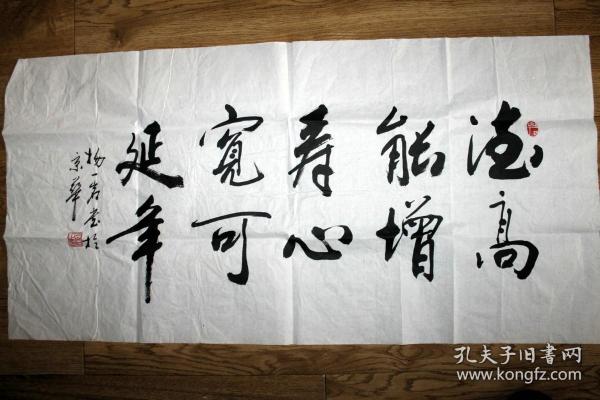 德高
能增
寿心
寬可
延年
杨一君书於
京華
孔夫子旧書网
www.kongfz.com